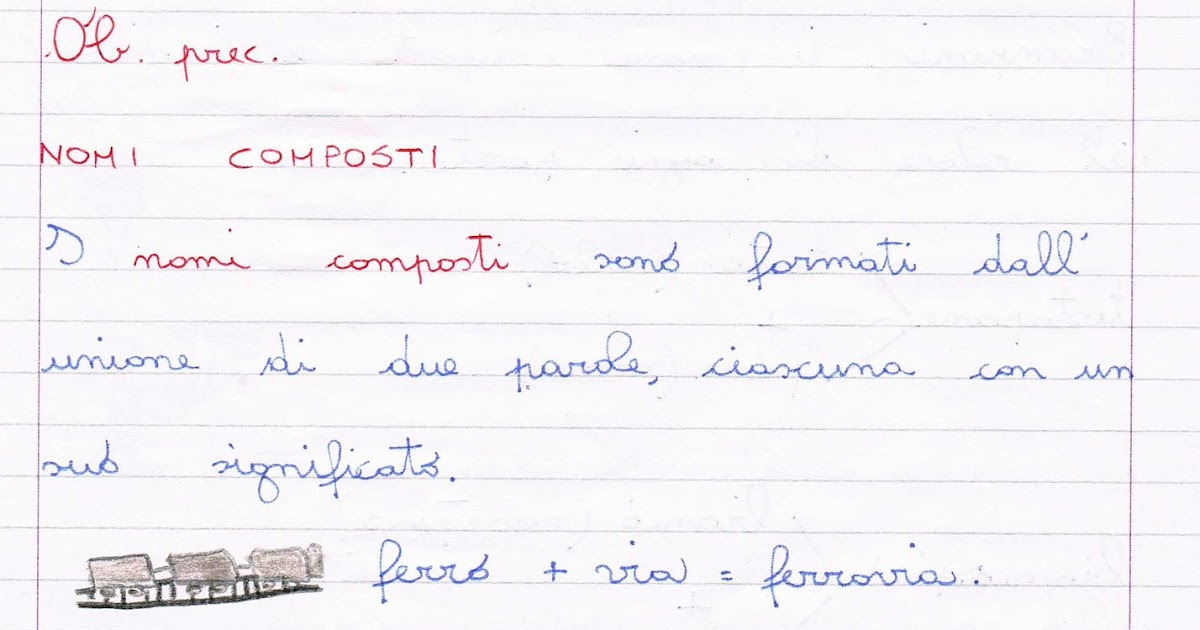 Ob. prec.
NOMI COMPOSTI
I nomi composti sono formati dall'
unione di due parole, ciascuna con un
suo significato.
ferro + via = ferrovia.